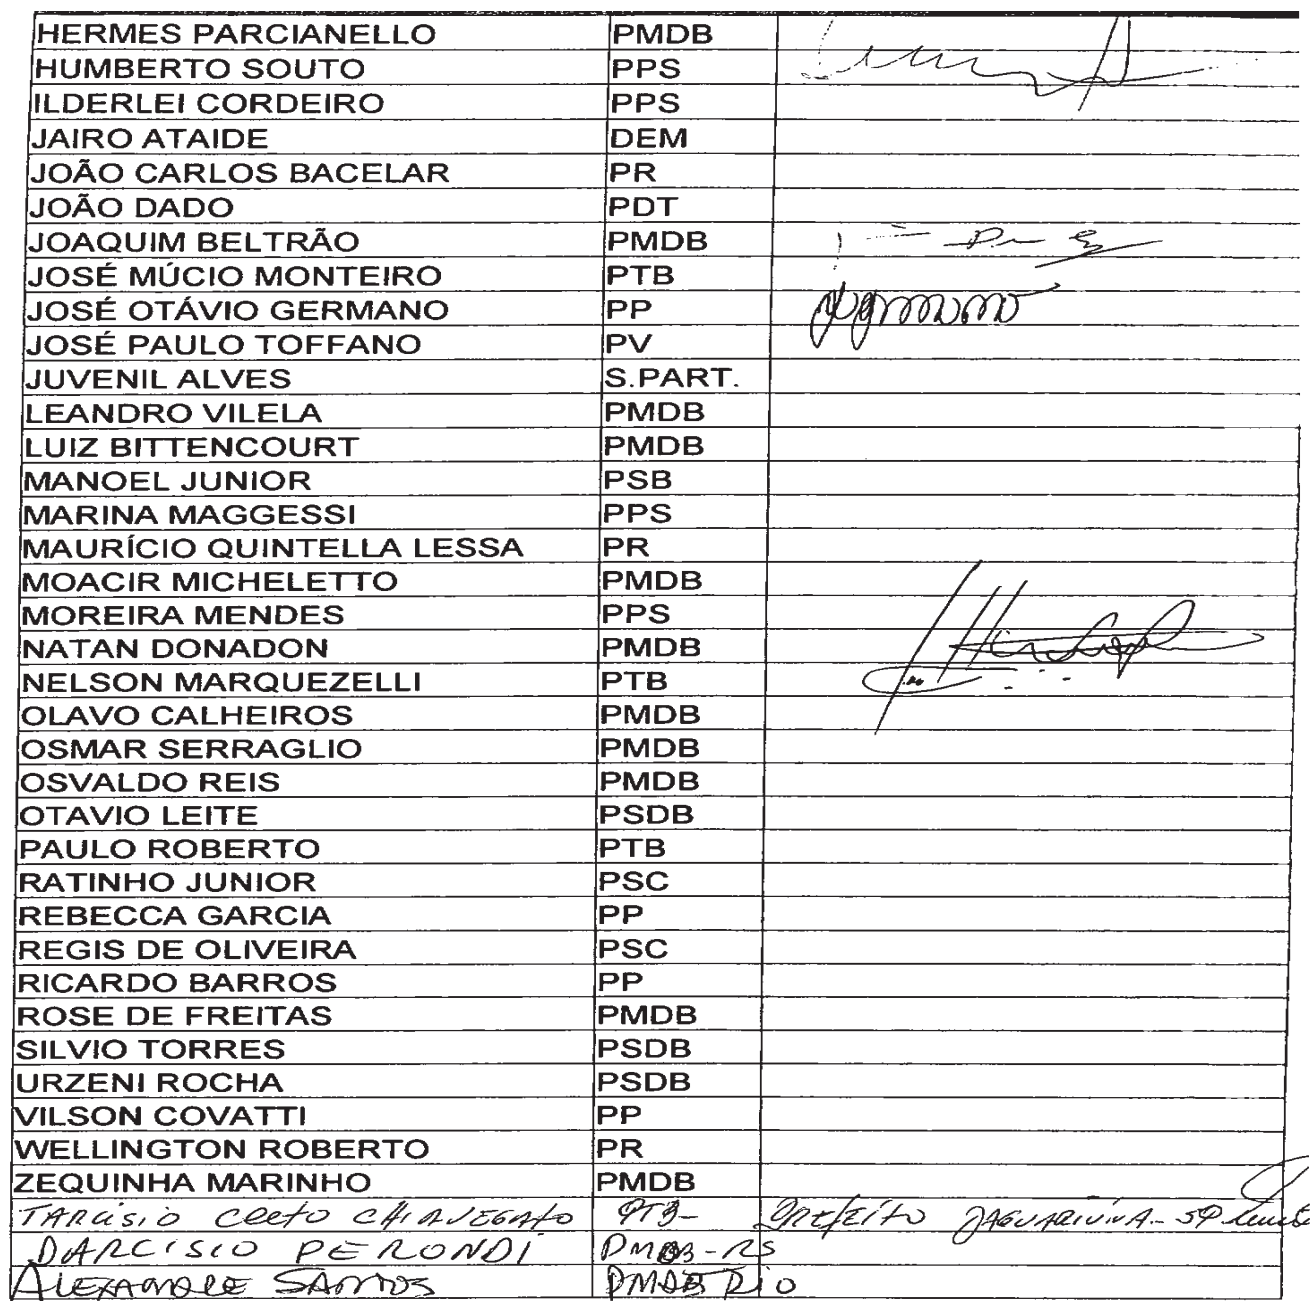 HERMES PARCIANELLO PMDB
HUMBERTO SOUTO PPS
ILDERLEI CORDEIRO PPS
JAIRO ATAIDE DEM
JOÃO CARLOS BACELAR PR
JOÃO DADO PDT
JOAQUIM BELTRÃO PMDB
JOSÉ MÚCIO MONTEIRO PTB
JOSÉ OTÁVIO GERMANO PP
JOSÉ PAULO TOFFANO PV
JUVENIL ALVES S.PART.
LEANDRO VILELA PMDB
LUIZ BITTENCOURT PMDB
MANOEL JUNIOR PSB
MARINA MAGGESSI PPS
MAURÍCIO QUINTELLA LESSA PR
MOACIR MICHELETTO PMDB
MOREIRA MENDES PPS
NATAN DONADON PMDB
NELSON MARQUEZELLI PTB
OLAVO CALHEIROS PMDB
OSMAR SERRAGLIO PMDB
OSVALDO REIS PMDB
OTAVIO LEITE PSDB
PAULO ROBERTO PTB
RATINHO JUNIOR PSC
REBECCA GARCIA PP
REGIS DE OLIVEIRA PSC
RICARDO BARROS PP
ROSE DE FREITAS PMDB
SILVIO TORRES PSDB
URZENI ROCHA PSDB
VILSON COVATTI PP
WELLINGTON ROBERTO PR
ZEQUINHA MARINHO PMDB
TARCISIO CLETO CHIAVEGATO PTB- PREFEITO JAGUARIUNA-SP
DARCISIO PERONDI PMDB-RS
ALEXANDRE SANTOS PMDB RIO